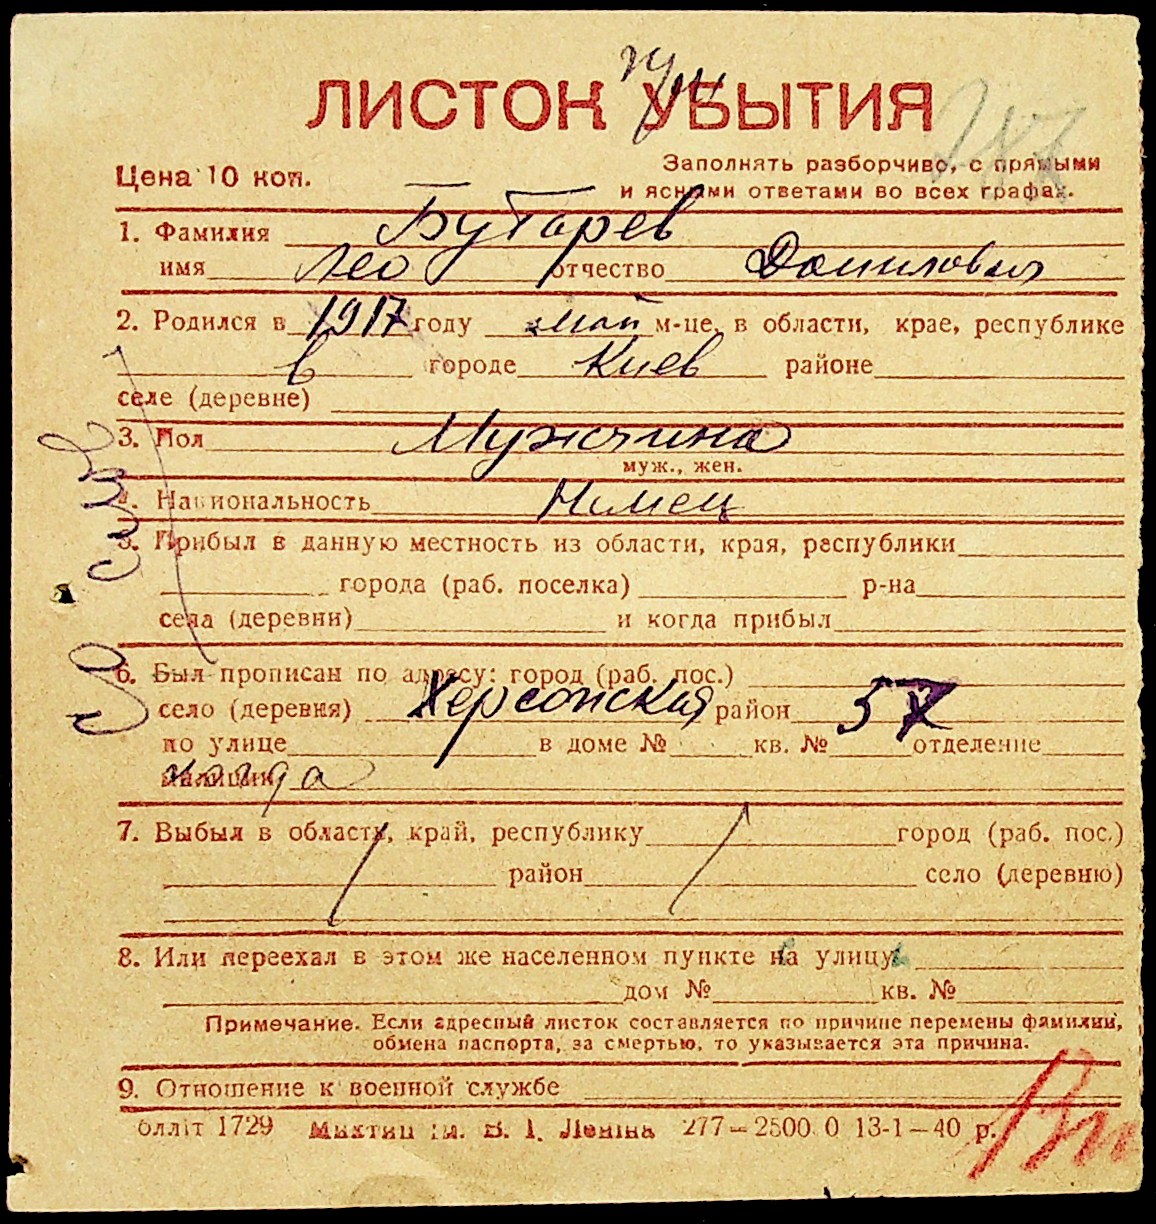 ЛИСТОК УБЫТИЯ
Цена 10 коп.
Заполнять разборчиво, с прямыми
и ясными ответами во всех графах.
1. Фамилия Бутарев
имя Лео отчество Данилович
2. Родился в 1917 году май м-це, в области, крае, республике
в городе Киев районе
селе (деревне)
3. Пол Мужчина
муж., жен.
4. Национальность Немец
5. Прибыл в данную местность из области, края, республики
города (раб. поселка) р-на
села (деревни) и когда прибыл
6. Был прописан по адресу: город (раб. пос.)
село (деревня) Херсонская район 57
по улице в доме № кв. № отделение
милиции
7. Выбыл в область, край, республику город (раб. пос.)
район село (деревню)
8. Или переехал в этом же населенном пункте на улицу
дом № кв. №
Примечание. Если адресный листок составляется по причине перемены фамилии,
обмена паспорта, за смертью, то указывается эта причина.
9. Отношение к военной службе
Олліт 1729 ім. В. І. Леніна 277—2500 0 13-1—40 р.